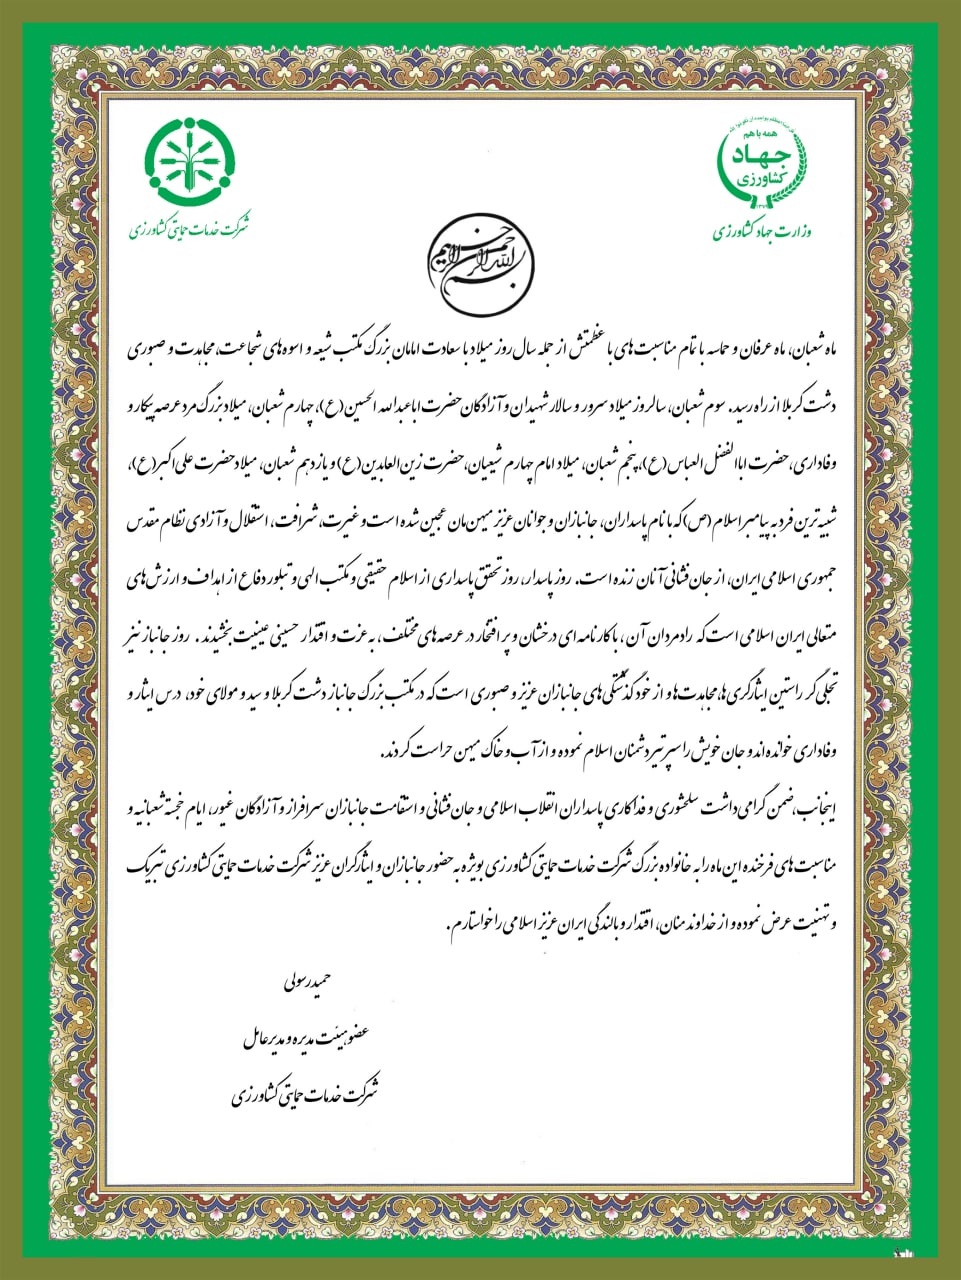 همه با هم
جهاد
کشاورزی
وزارت جهاد کشاورزی
شرکت خدمات حمایتی کشاورزی
بسم الله الرحمن الرحیم
ماه شعبان، ماه عرفان و حماسه با تمام مناسبت های با عظمتش از جمله سال روز میلاد با سعادت امامان بزرگ مکتب شیعه و اسوه های شجاعت، مجاهدت و صبوری
دشت کربلا از راه رسید. سوم شعبان، سالروز میلاد سرور و سالار شهیدان و آزادگان حضرت اباعبدالله الحسین (ع)، چهارم شعبان، میلاد بزرگ مرد عرصه پیکار و
وفاداری، حضرت اباالفضل العباس (ع)، پنجم شعبان، میلاد امام چهارم شیعیان، حضرت زین العابدین (ع) و یازدهم شعبان، میلاد حضرت علی اکبر (ع)،
شبیه ترین فرد به پیامبر اسلام (ص) که با نام پاسداران، جانبازان و جوانان عزیز میهن مان عجین شده است و غیرت، شرافت، استقلال و آزادی نظام مقدس
جمهوری اسلامی ایران، از جان فشانی آنان زنده است. روز پاسدار، روز تحقق پاسداری از اسلام حقیقی و مکتب الهی و تبلور دفاع از اهداف و ارزش های
متعالی ایران اسلامی است که رادمردان آن، با کارنامه ای درخشان و پر افتخار در عرصه های مختلف، به عزت و اقتدار حسینی عینیت بخشیدند. روز جانباز نیز
تجلی گر راستین ایثارگری ها، مجاهدت ها و از خود گذشتگی های جانبازان عزیز و صبوری است که در مکتب بزرگ جانباز دشت کربلا و سید و مولای خود، درس ایثار و
وفاداری خوانده اند و جان خویش را سپر تیر دشمنان اسلام نموده و از آب و خاک میهن حراست کردند.
اینجانب، ضمن گرامی داشت سلحشوری و فداکاری پاسداران انقلاب اسلامی و جان فشانی و استقامت جانبازان سرافراز و آزادگان غیور، ایام خجسته شعبانیه و
مناسبت های فرخنده این ماه را به خانواده بزرگ شرکت خدمات حمایتی کشاورزی بویژه به حضور جانبازان و ایثارگران عزیز شرکت خدمات حمایتی کشاورزی تبریک
و تهنیت عرض نموده و از خداوند منان، اقتدار و بالندگی ایران عزیز اسلامی را خواستارم.
حمید رسولی
عضو هیئت مدیره و مدیرعامل
شرکت خدمات حمایتی کشاورزی